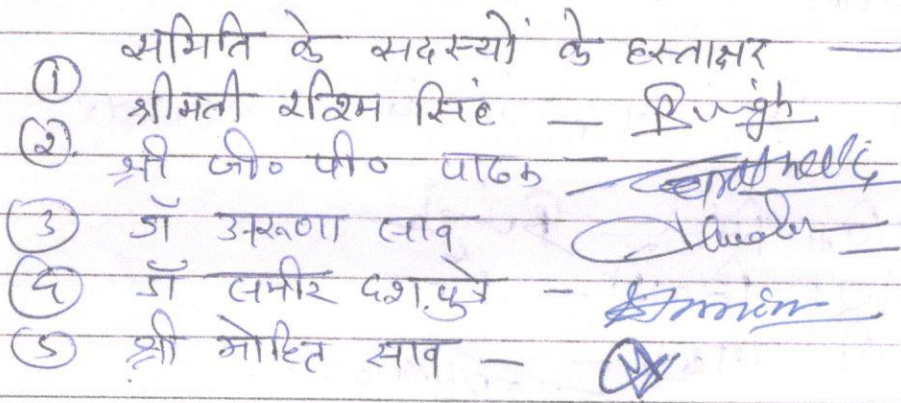 समिति के सदस्यों के हस्ताक्षर —
① श्रीमती रश्मि सिंह —
② श्री जी० पी० पाठक —
③ डॉ अरूणा साव
④ डॉ समीर दशपुत्रे —
⑤ श्री मोहित साव —